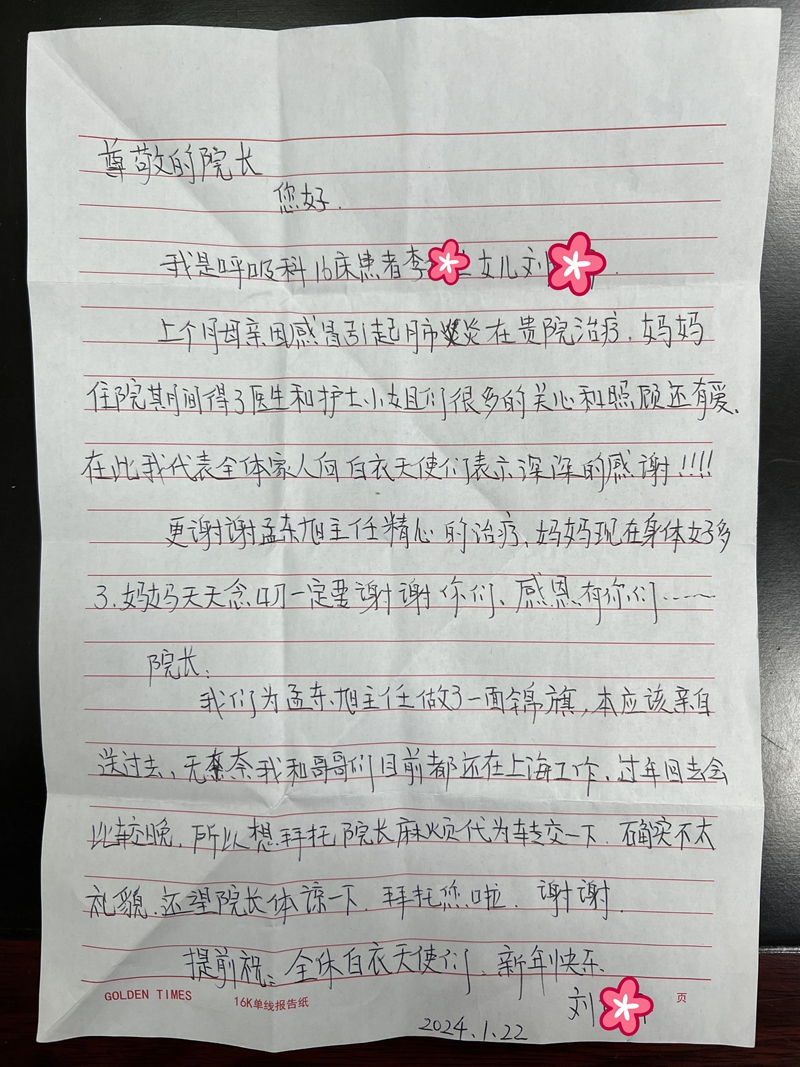 尊敬的院长
您好.
我是呼吸科16床患者李 女儿刘 .
上个月母亲因感冒引起肺炎在贵院治疗,妈妈
住院期间得了医生和护士小姐们很多的关心和照顾还有爱.
在此我代表全体家人向白衣天使们表示深深的感谢!!!!
更谢谢孟东旭主任精心的治疗、妈妈现在身体好多
了.妈妈天天念叨一定要谢谢你们、感恩有你们……
院长:
我们为孟东旭主任做了一面锦旗,本应该亲自
送过去、无奈我和哥哥们目前都还在上海工作、过年回去会
比较晚,所以想拜托院长麻烦代为转交一下.确实不太
礼貌.还望院长体谅一下.拜托您啦.谢谢.
提前祝:全体白衣天使们、新年快乐.
刘
GOLDEN TIMES 16K单线报告纸 页
2024.1.22